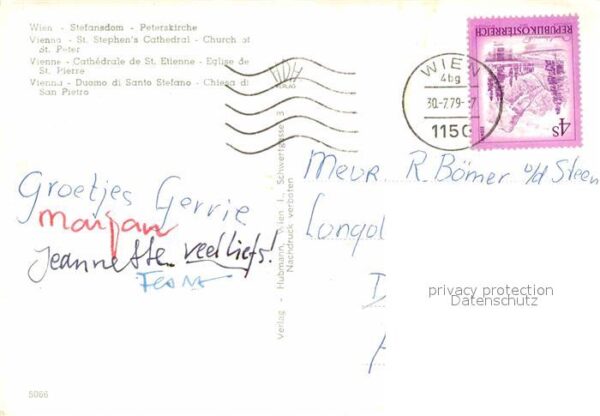 Wien - Stefansdom - Peterskirche
Vienna - St. Stephen's Cathedral - Church of
St. Peter
Vienne - Cathédrale de St. Etienne - Eglise de
St. Pierre
Vienna - Duomo di Santo Stefano - Chiesa di
San Pietro
VERLAG
REPUBLIK ÖSTERREICH
4S
WIEN
4bg
30.-7.79-
1150
Meur. R. Bömer v/d Steen
Groetjes Gerrie
Marjan
Jeannette veel liefs!
Verlag - Hubmann, Wien I., Schwertgasse 3
Nachdruck verboten
privacy protection
Datenschutz
5066